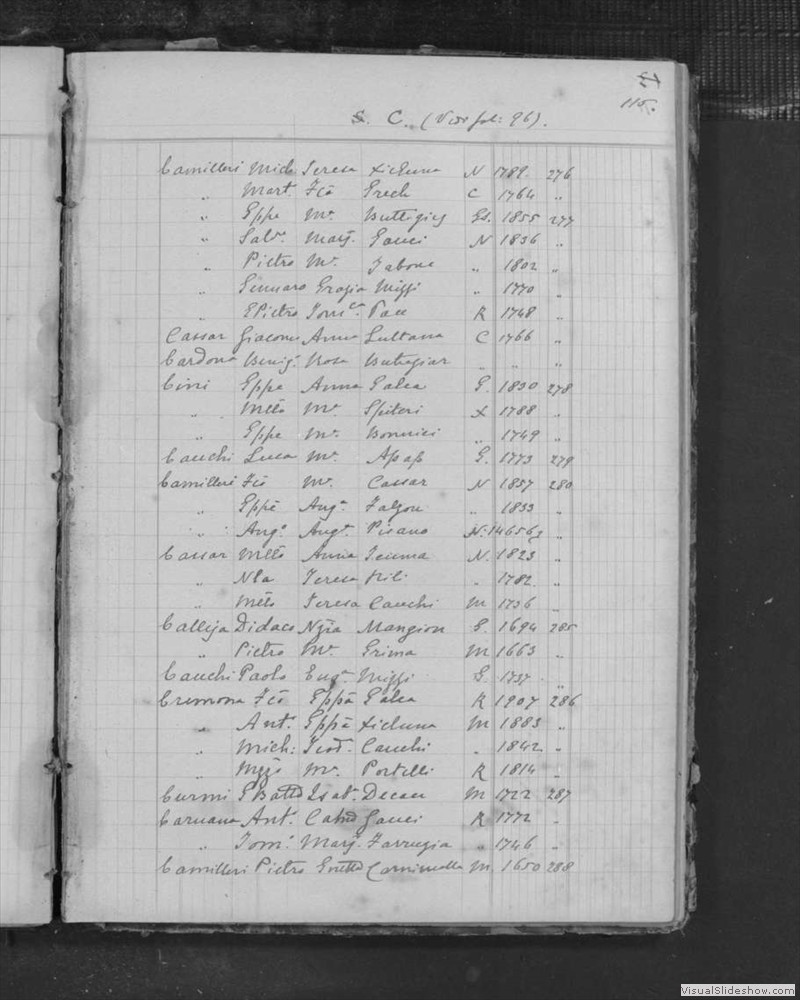 115.
S. C. (Vide fol: 96).
Camilleri Mich Teresa Xicluna N 1789. 276
„ Mart. Fco Grech C 1764 „
„ Gppe Ma. Buttigieg Gd. 1855 277
„ Salv. Marg. Gauci N 1836 „
„ Pietro Ma. Tabone „ 1802 „
„ Gennaro Grazia Mizzi „ 1770 „
„ GPietro Pace K 1748 „
Cassar Giacomo Anna Sultana C 1766 „
Cardona Benig. Rosa Buttigiar „ „ „
Cini Gppe Anna Galea G. 1830 278
„ Mtteo Ma. Spiteri X 1788 „
„ Gppe Ma. Bonnici „ 1749 „
Cauchi Luca Ma. Apap G. 1773 279
Camilleri Fco Ma. Cassar N 1857 280
„ Gppe Ang. Falzon „ 1833 „
„ Ang. Ang. Pisano N. „
Cassar Mtteo Anna N. 1823 „
„ Nla Teresa Xili „ 1782 „
„ Mtteo Teresa Cauchi M 1736 „
Calleja Didaco Ngia Mangion G. 1694 285
„ Pietro Ma. Grima M 1663 „
Cauchi Paolo Eug. Mizzi G. 1737 „
Cremona Fco Gppa Galea K 1907 286
„ Ant. Gppa Xicluna M 1883 „
„ Mich: Teod. Cauchi „ 1842 „
„ Ma. Portelli K 1814 „
Curmi GBatta Isab. M 1722 287
Caruana Ant. Gauci K 1772 „
„ Tom. Marg. Farrugia „ 1746 „
Camilleri Pietro M. 1650 288
VisualSlideshow.com